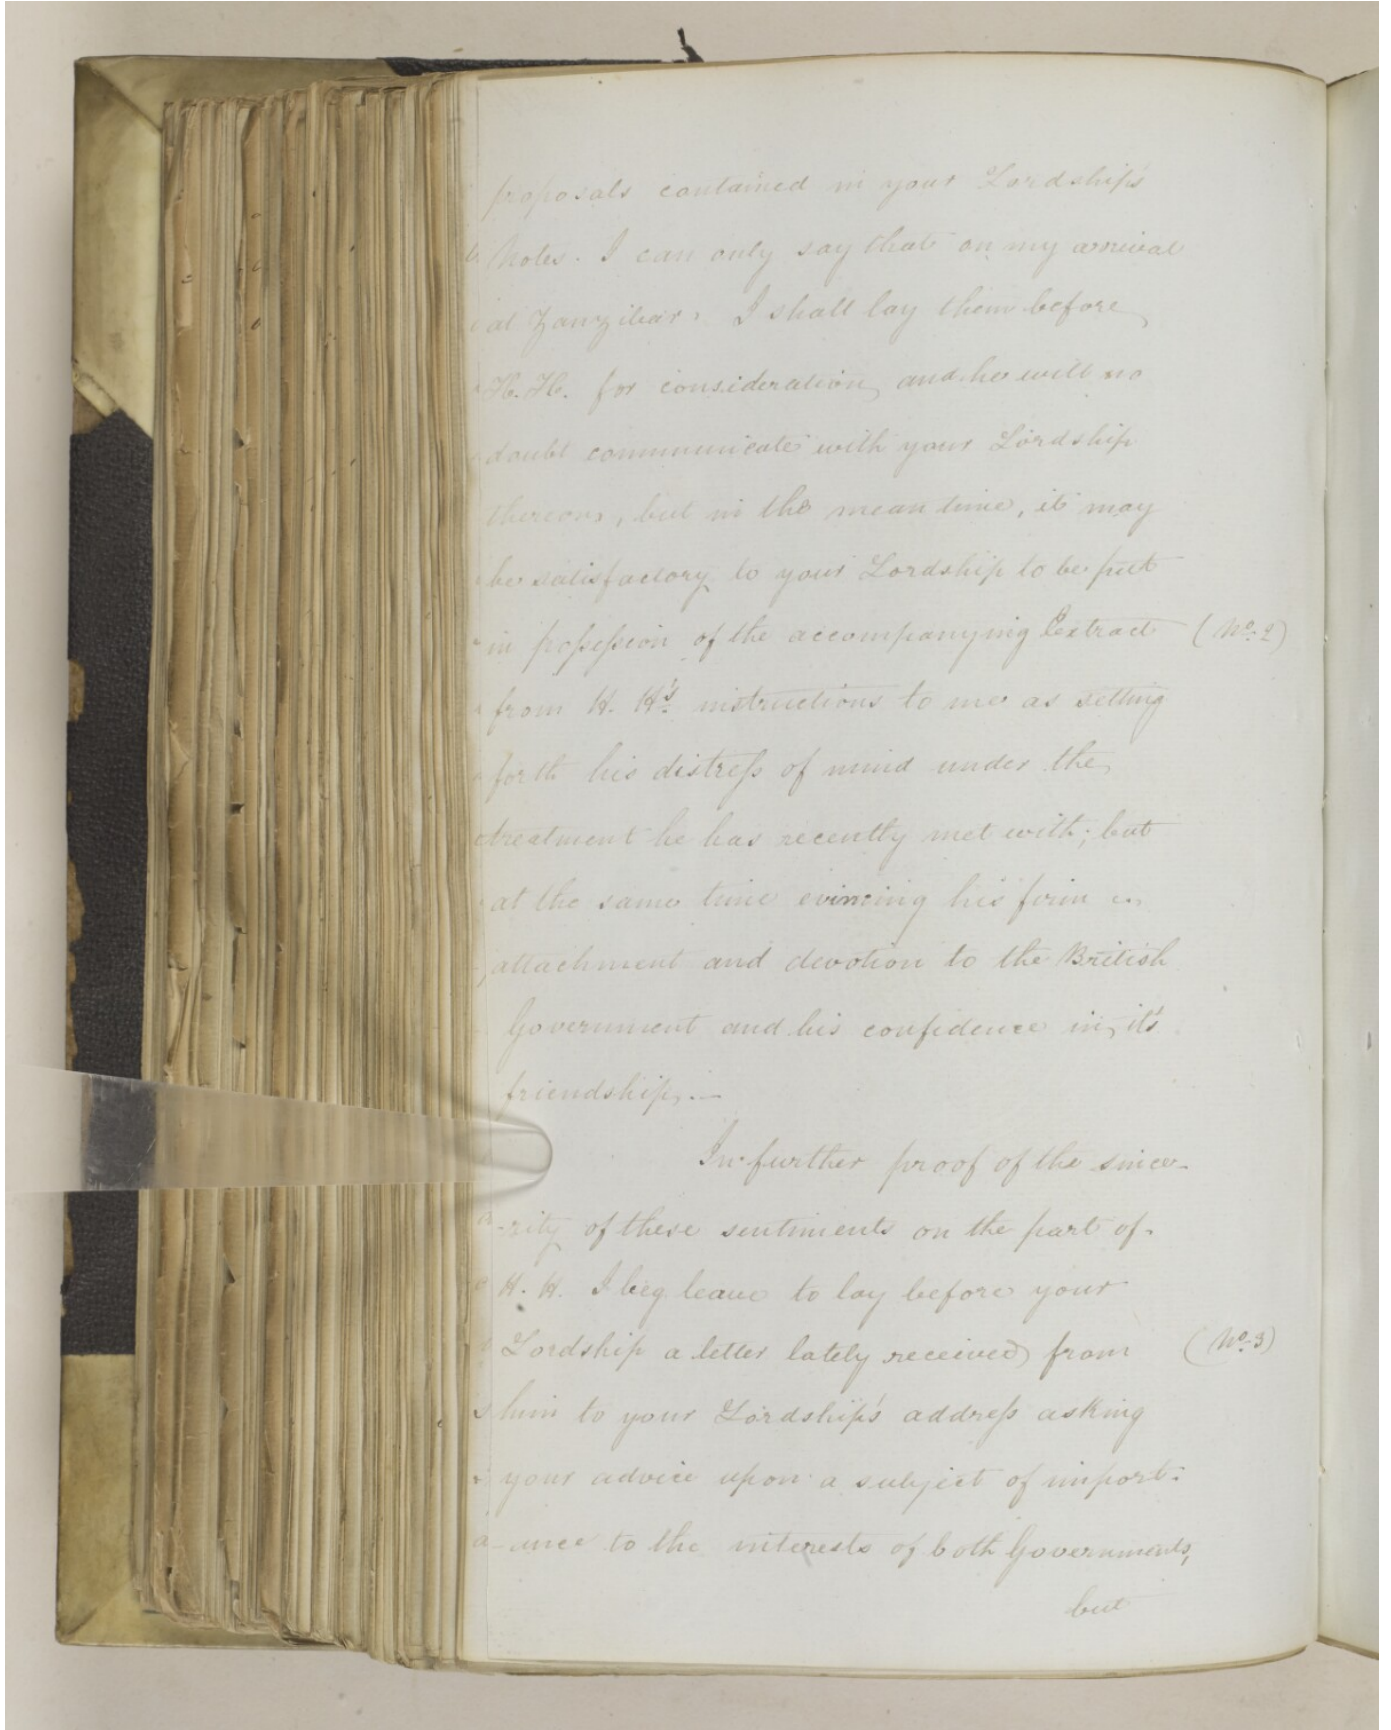 proposals contained in your Lordship's
Notes. I can only say that on my arrival
at Zanzibar, I shall lay them before
H. H. for consideration, and he will no
doubt communicate with your Lordship
thereon, but in the mean time, it may
be satisfactory to your Lordship to be put
in possession of the accompanying Extract (No. 2)
from H. H's. instructions to me as setting
forth his distress of mind under the
treatment he has recently met with; but
at the same time evincing his firm
attachment and devotion to the British
Government and his confidence in it's
friendship. —
In further proof of the since-
-rity of these sentiments on the part of
H. H. I beg leave to lay before your
Lordship a letter lately received from (No. 3)
him to your Lordship's address asking
your advice upon a subject of import-
-ance to the interests of both Governments,
but